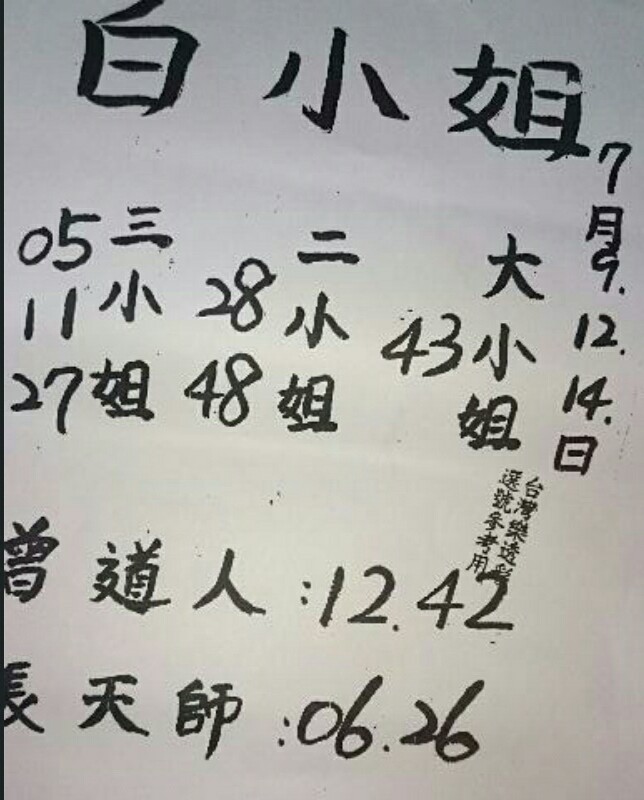 白小姐
7月9.12.14.日
大小姐
43
二小姐
28
48
三小姐
05
11
27
台灣樂透彩
選號參考用
曾道人:12.42
張天師:06.26